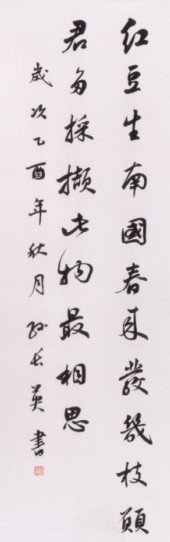 紅豆生南國春來發幾枝願
君多採擷此物最相思
歲次乙酉年秋月孫長英書